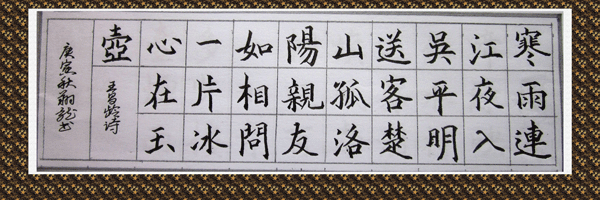 寒雨連
江夜入
吳平明
送客楚
山孤洛
陽親友
如相問
一片冰
心在玉
壺
王昌龄诗
庚寅秋翱龍书